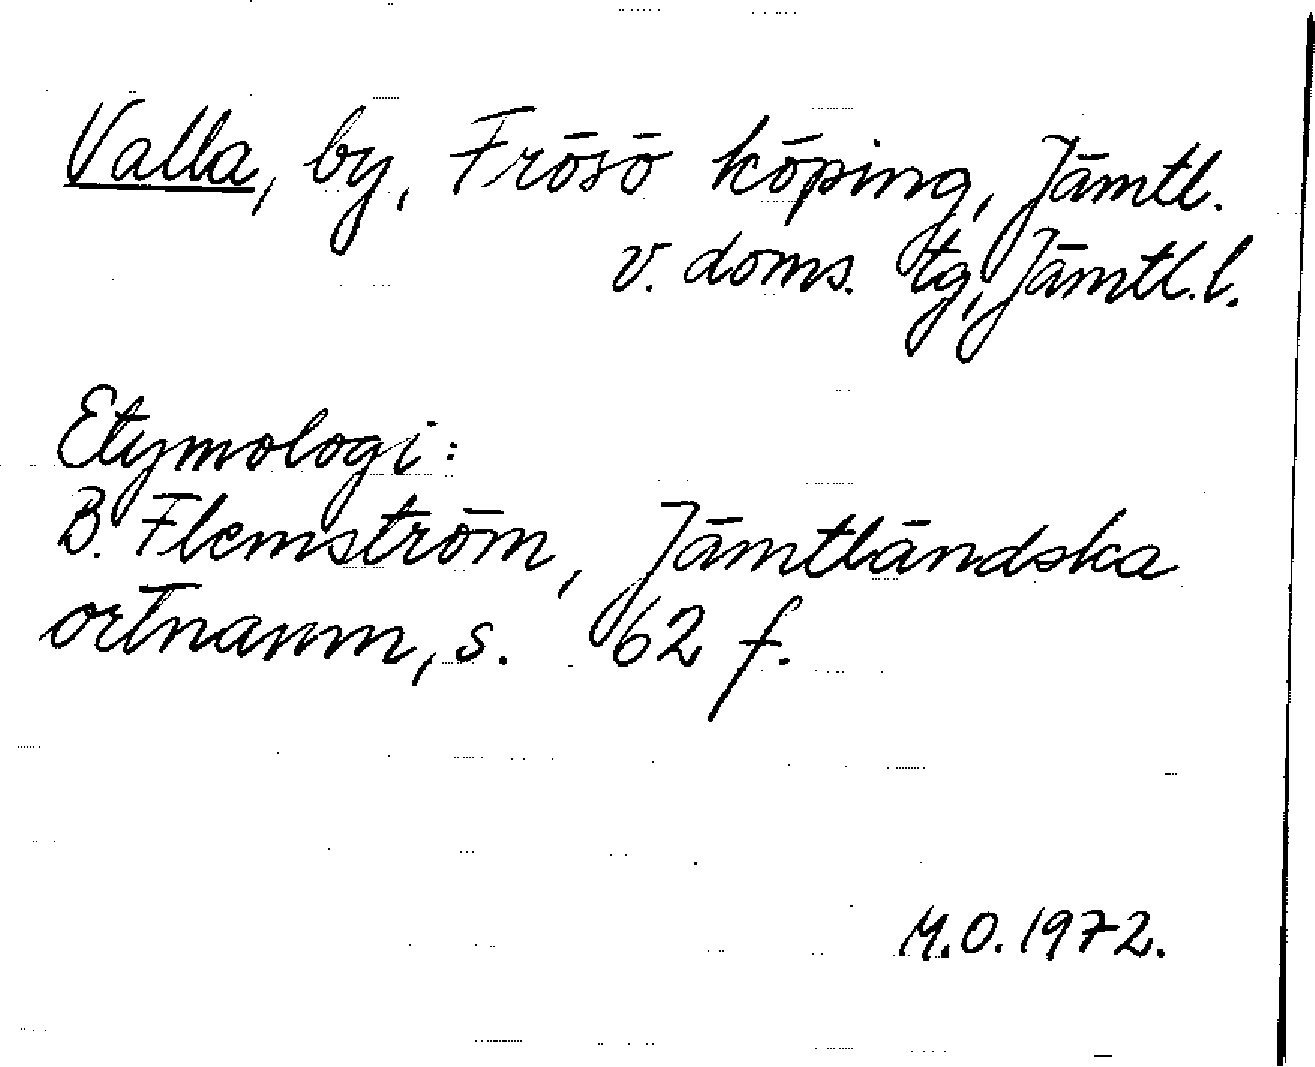 Valla, by, Frösö köping, Jämtl.
v. doms. tg, Jämtl. l.
Etymologi:
B. Flemström, Jämtländska
ortnamn, s. 62 f.
M.O. 1972.